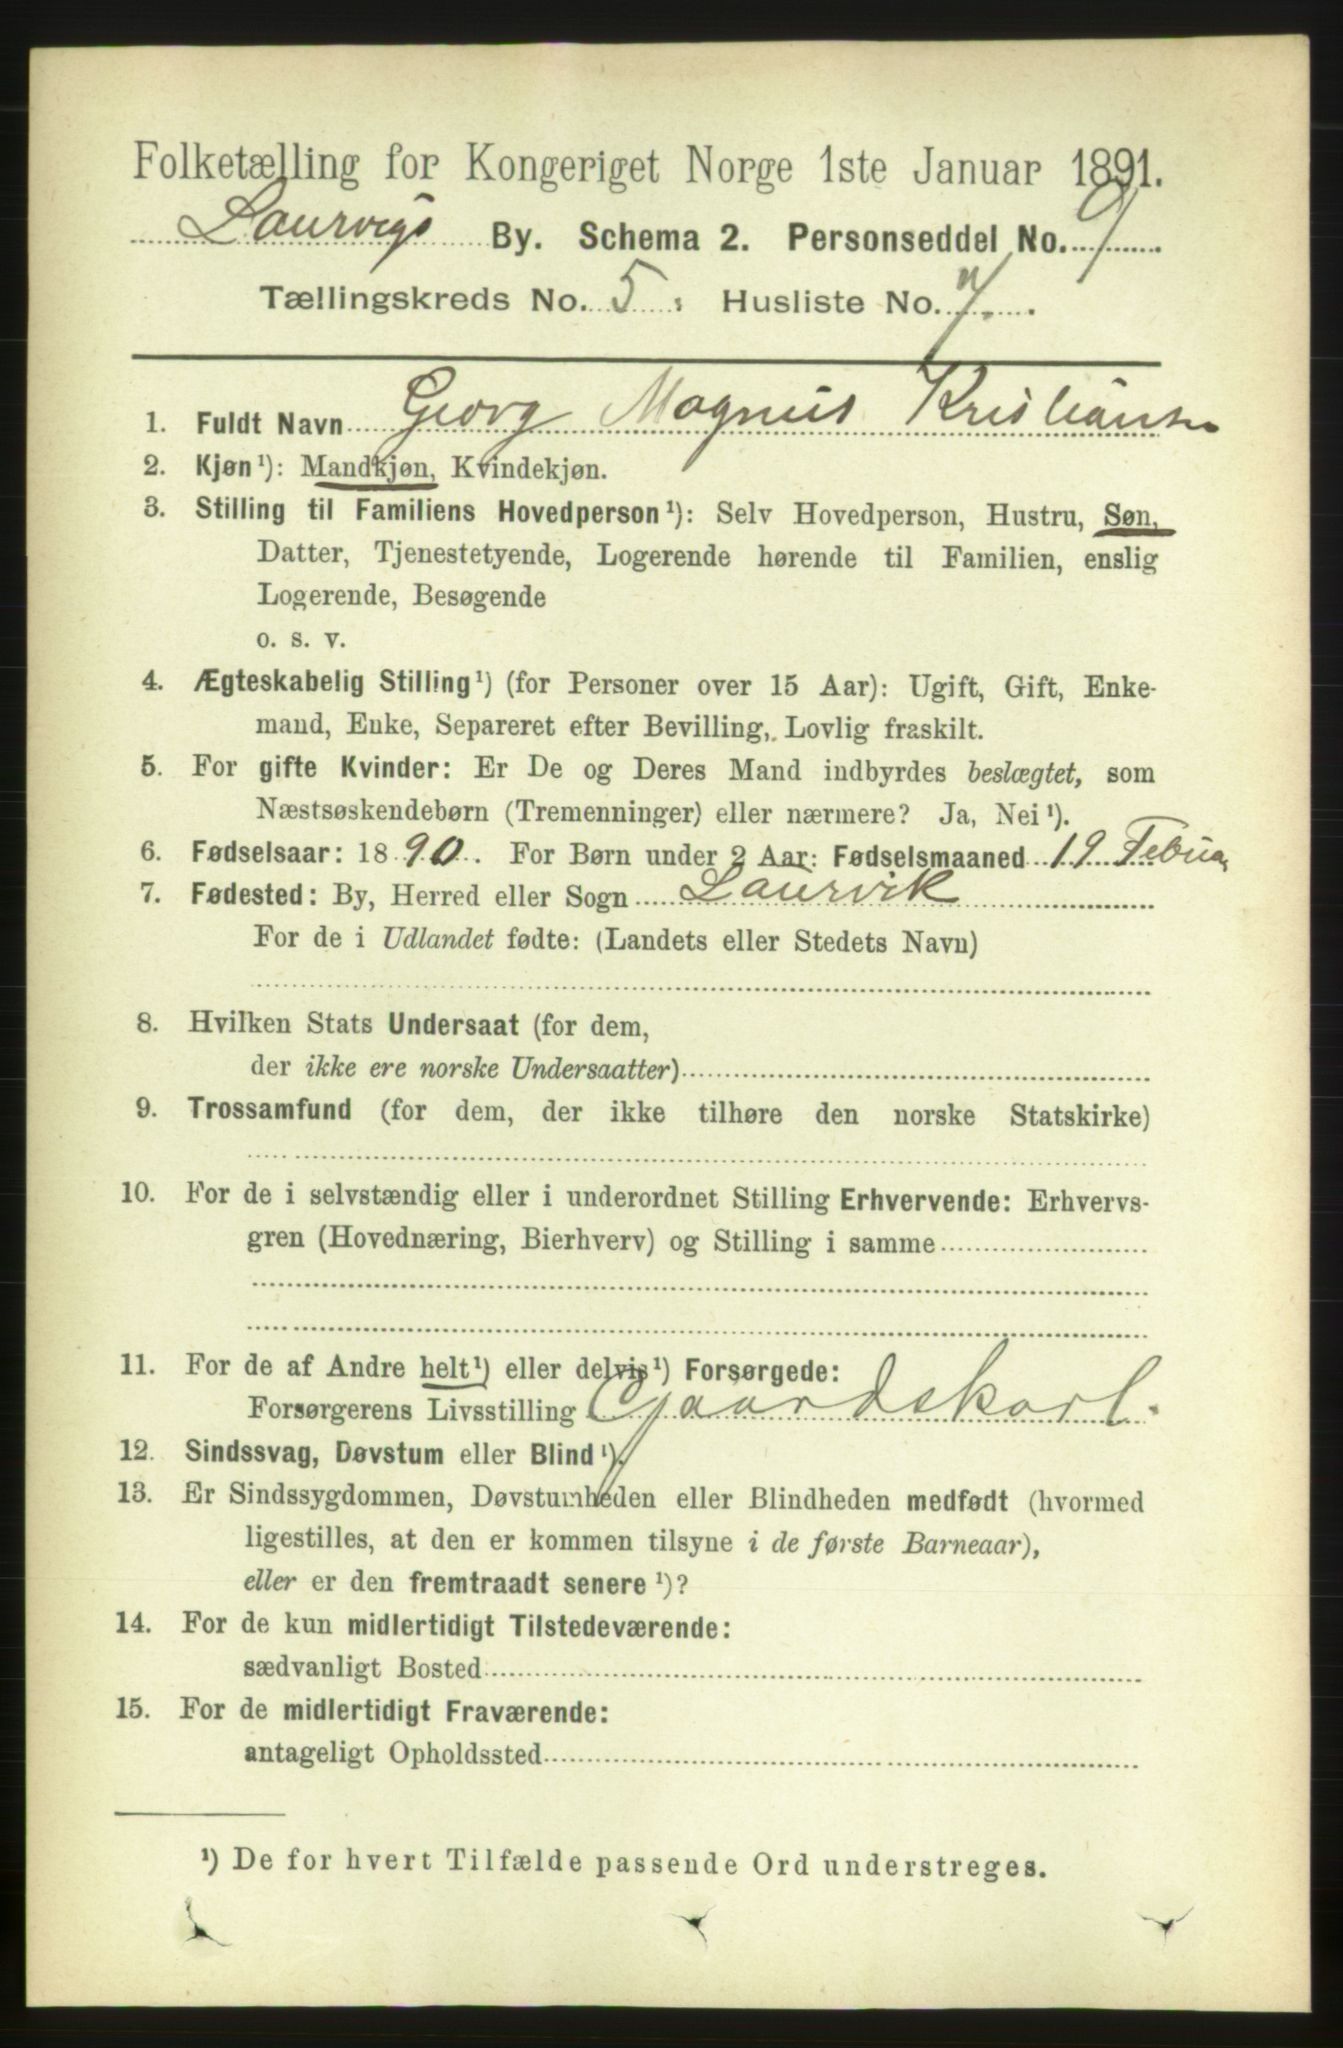 Folketælling for Kongeriget Norge 1ste Januar 1891.
Laurvigs By. Schema 2. Personseddel No. 9
Tællingskreds No. 5. Husliste No. 7.
1. Fuldt Navn Georg Magnus Kristiansen
2. Kjøn¹): Mandkjøn, Kvindekjøn.
3. Stilling til Familiens Hovedperson¹): Selv Hovedperson, Hustru, Søn,
Datter, Tjenestetyende, Logerende hørende til Familien, enslig
Logerende, Besøgende
o. s. v.
4. Ægteskabelig Stilling¹) (for Personer over 15 Aar): Ugift, Gift, Enke-
mand, Enke, Separeret efter Bevilling, Lovlig fraskilt.
5. For gifte Kvinder: Er De og Deres Mand indbyrdes beslægtet, som
Næstsøskendebørn (Tremenninger) eller nærmere? Ja, Nei¹).
6. Fødselsaar: 1890. For Børn under 2 Aar: Fødselsmaaned 19 Febua
7. Fødested: By, Herred eller Sogn Laurvik
For de i Udlandet fødte: (Landets eller Stedets Navn)
8. Hvilken Stats Undersaat (for dem,
der ikke ere norske Undersaatter)
9. Trossamfund (for dem, der ikke tilhøre den norske Statskirke)
10. For de i selvstændig eller i underordnet Stilling Erhvervende: Erhvervs-
gren (Hovednæring, Bierhverv) og Stilling i samme
11. For de af Andre helt¹) eller delvis¹) Forsørgede:
Forsørgerens Livsstilling Gaardskarl.
12. Sindssvag, Døvstum eller Blind¹).
13. Er Sindssygdommen, Døvstumheden eller Blindheden medfødt (hvormed
ligestilles, at den er kommen tilsyne i de første Barneaar),
eller er den fremtraadt senere¹)?
14. For de kun midlertidigt Tilstedeværende:
sædvanligt Bosted
15. For de midlertidigt Fraværende:
antageligt Opholdssted
¹) De for hvert Tilfælde passende Ord understreges.